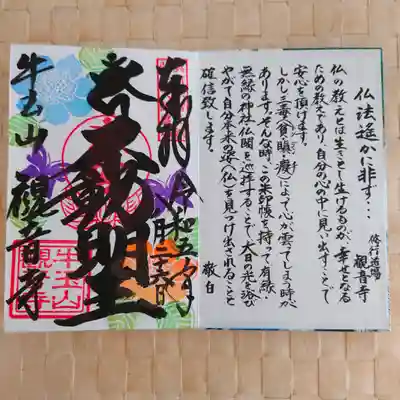 仏法遥かに非ず…
修行道場
観音寺
仏の教えとは生きとし生けるものが、幸せとなる
ための教えであり、自分の心の中に見い出すことで
安心を頂けます。
しかし三毒(貪瞋癡)によって心が雲ってしまう時が
あります。そんな時、この朱印帳を持って、有縁・
無縁の神社仏閣を巡拝することで、大日の光を浴び
やがて自分本来の姿(仏)を見つけ出されること
確信致します。
敬白
奉拝
令和五年
月二十六日
不動明王
牛玉山
観音寺
牛玉山
観音寺